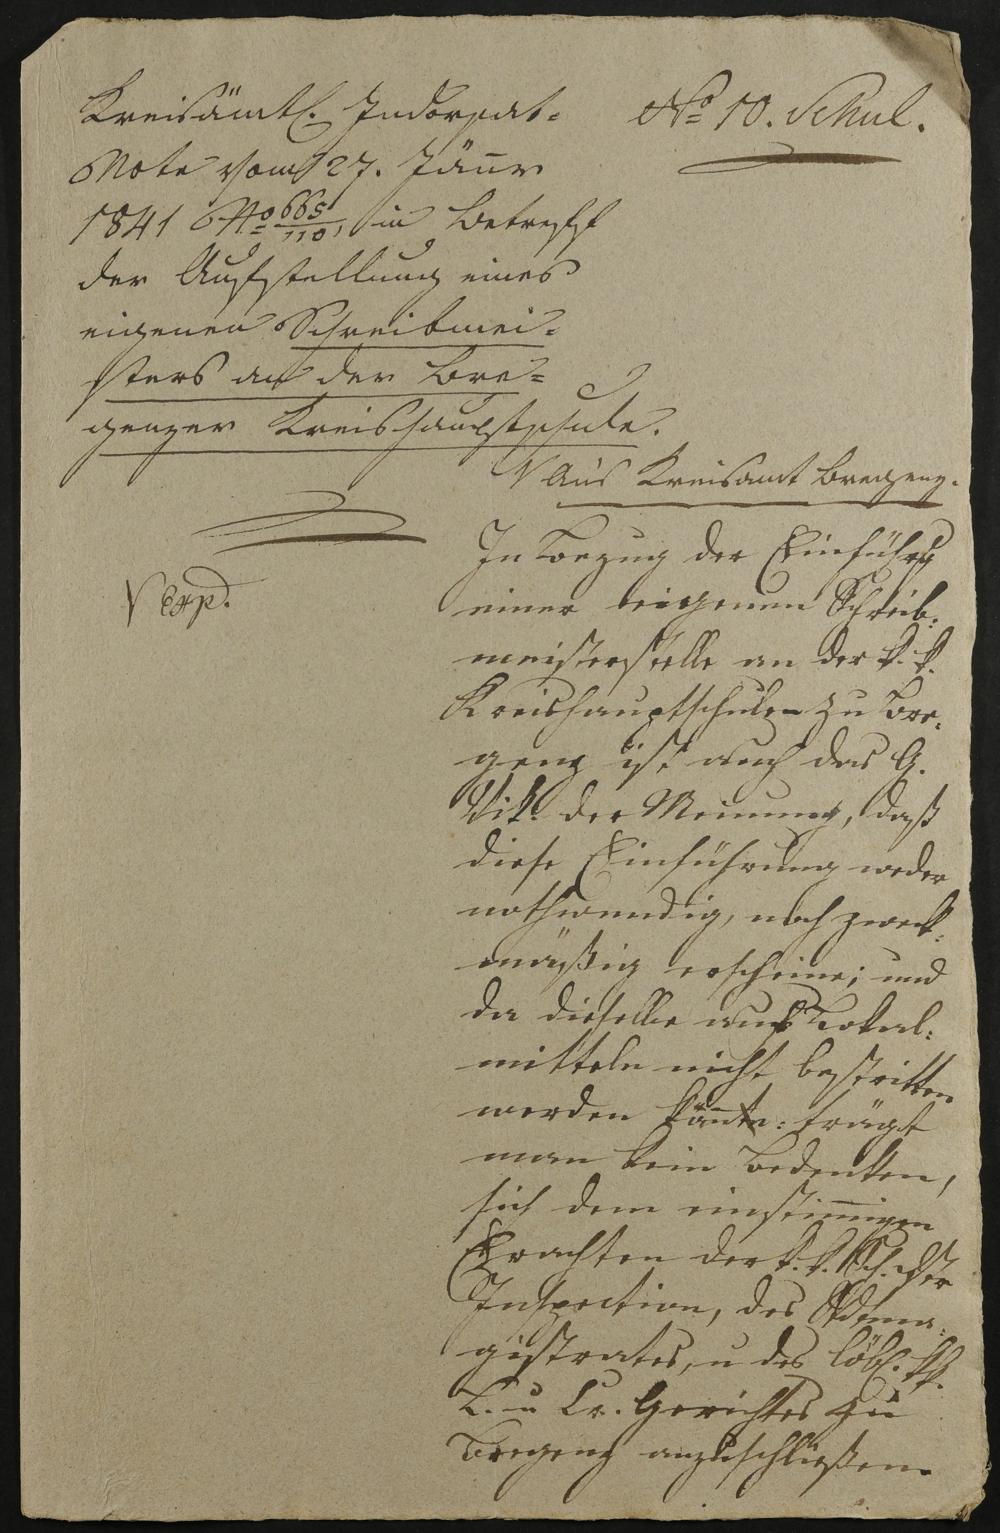 Kreisämtl. Indorsat-
Note vom 27. Jänner
1841 No 665/110, in Betreff
der Aufstellung eines
eigenen Schreibmei-
sters an der Bre-
genzer Kreishauptschule.
No 10. Schul.
Ans Kreisamt Bregenz.
Exp.
In Bezug der Einführg
einer eigenen Schreib-
meisterstelle an der k. k.
Kreishauptschule zu Bre-
genz ist auch das G.
Vik. der Meinung, daß
diese Einführung weder
nothwendig, noch zweck-
mäßig erscheine; und
da dieselbe aus Lokal-
mitteln nicht bestritten
werden könnte: trägt
man kein Bedenken,
sich dem einstimmigen
Erachten der k. k. Sch.
Inspection, des Stdtma-
gistrates, u des löbl. kk.
L. u Cr. Gerichtes zu
Bregenz anzuschließen.